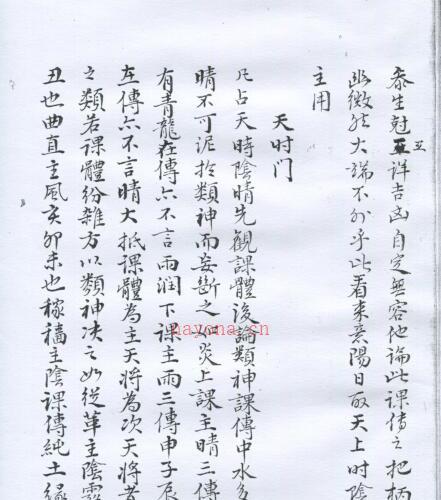 泰生尅互詳吉凶自定無容他論此課傳之把柄
幽微然大端不外乎此看来意陽日取天上時陰
主用
天时门
凡占天時陰晴先観課體後論類神課傳中水多
晴不可泥扵類神而妄斷之如炎上課主晴三傳
有青龍在傳亦不言雨润下課主雨三傳申子辰
在傳亦不言晴大抵課體為主天將為次天將者
之類若課體紛雜方以類神决之如従革主陰雲
丑也曲直主風亥卯未也稼穡主陰課傳純土緣
nayona.cn